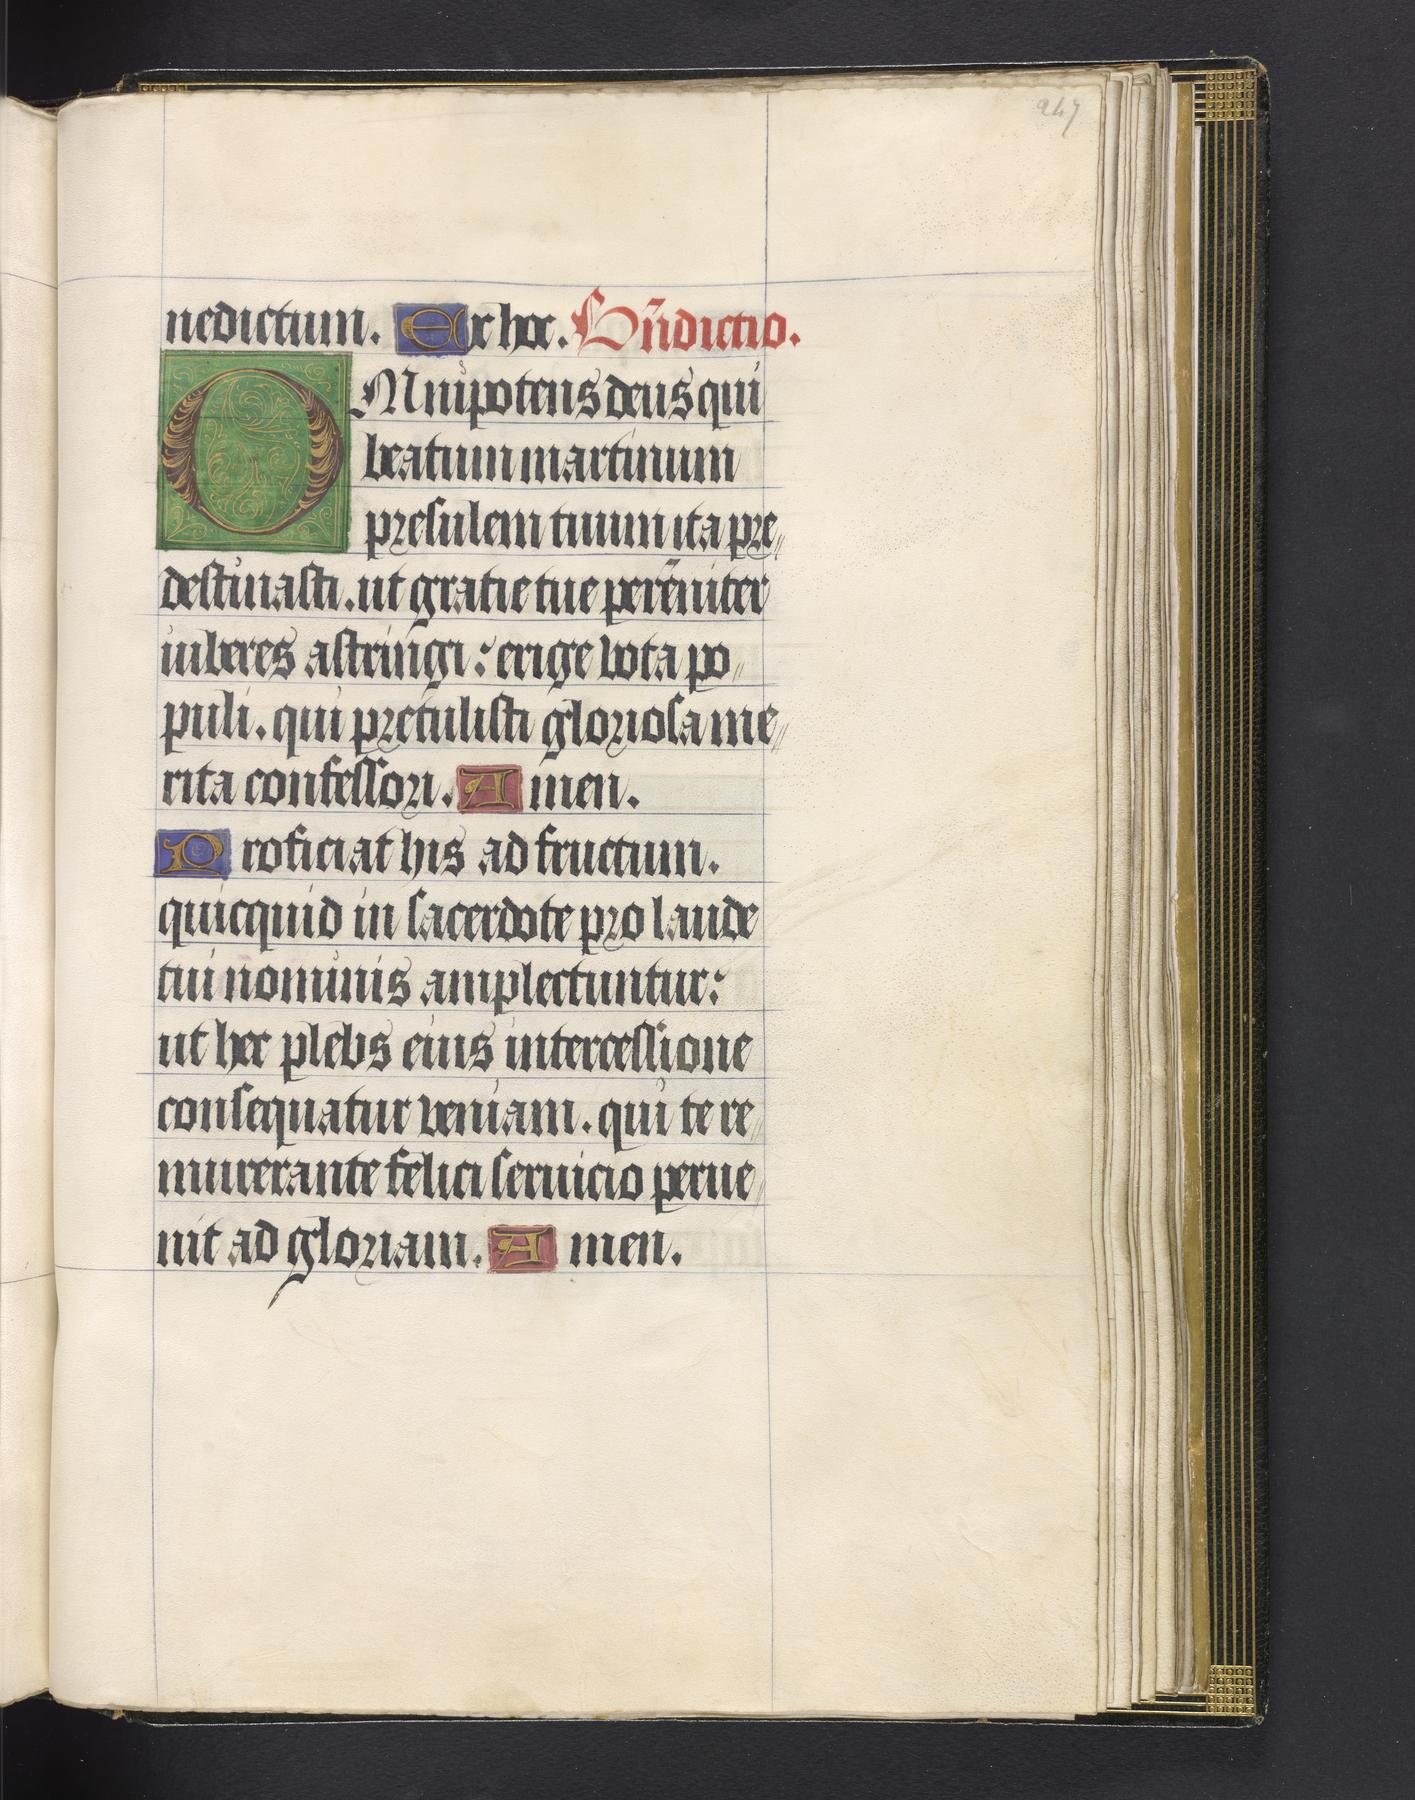 247
nedictum. Ex hoc. Bn̄dictio.
OMnipotens deus qui
beatum martinum
presulem tuum ita pre„
destinasti. ut gratie tue perēniter
iuberes astringi: erige vota po„
puli. qui pretulisti gloriosa me„
rita confessori. Amen.
Proficiat his ad fructum.
quicquid in sacerdote pro laude
tui nominis amplectuntur:
ut hec plebs eius intercessione
consequatur veniam. qui te re„
munerante felici seruicio perue„
nit ad gloriam. Amen.